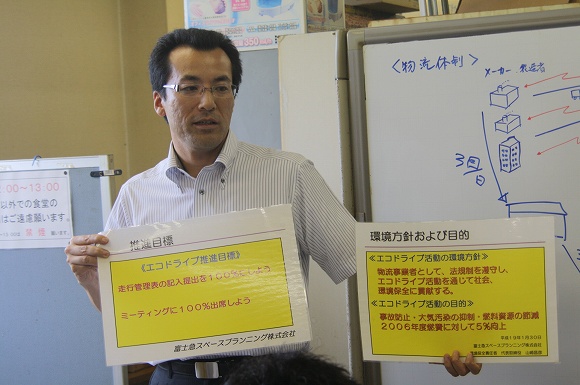 :00〜13:00
以外での食堂の
はご遠慮願います。
＜物流体制＞
メーカー 製造者
3回
日
推進目標
《エコドライブ推進目標》
走行管理表の記入提出を100％にしよう
ミーティングに100％出席しよう
富士急スペースプランニング株式会社
環境方針および目的
≪エコドライブ活動の環境方針≫
物流事業者として、法規制を遵守し、
エコドライブ活動を通じて社会、
環境保全に貢献する。
≪エコドライブ活動の目的≫
事故防止・大気汚染の抑制・燃料資源の節減
2006年度燃費に対して5％向上
平成19年1月30日
富士急スペースプランニング株式会社